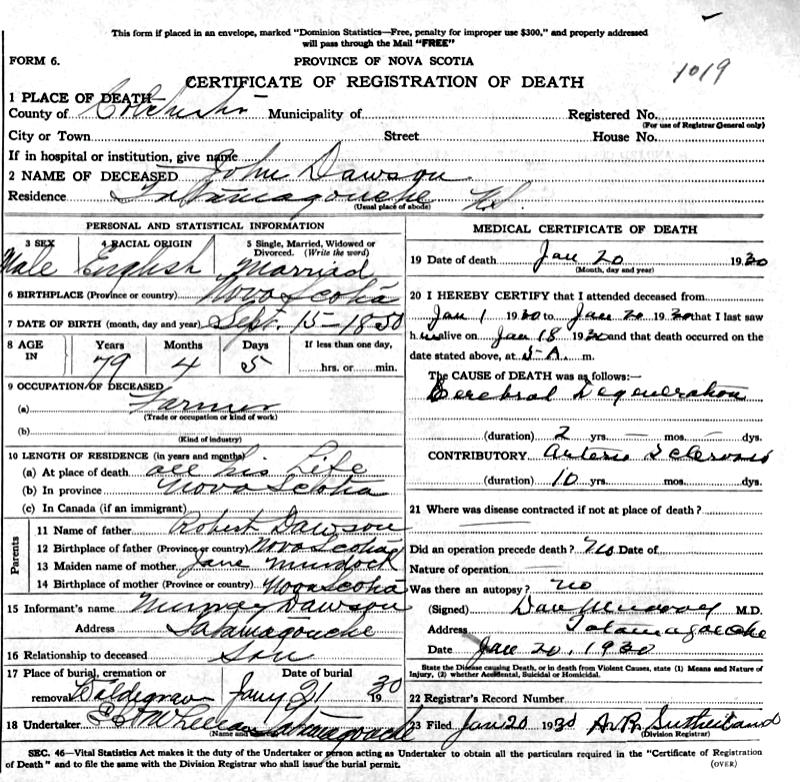 This form if placed in an envelope, marked "Dominion Statistics—Free, penalty for improper use $300," and properly addressed
will pass through the Mail "FREE"
FORM 6.
PROVINCE OF NOVA SCOTIA
CERTIFICATE OF REGISTRATION OF DEATH
1019
1 PLACE OF DEATH—
County of Colchester Municipality of Registered No.
(For use of Registrar General only)
City or Town Street House No.
If in hospital or institution, give name
2 NAME OF DECEASED John Dawson
Residence Tatamagouche N.S.
(Usual place of abode)
PERSONAL AND STATISTICAL INFORMATION
3 SEX 4 RACIAL ORIGIN 5 Single, Married, Widowed or Divorced. (Write the word)
Male English Married
6 BIRTHPLACE (Province or country) Nova Scotia
7 DATE OF BIRTH (month, day and year) Sept. 15-1850
8 AGE IN Years Months Days If less than one day,
79 4 5 hrs. or min.
9 OCCUPATION OF DECEASED
(a) Farmer
(Trade or occupation or kind of work)
(b)
(Kind of industry)
10 LENGTH OF RESIDENCE (in years and months)
(a) At place of death all his Life
(b) In province Nova Scotia
(c) In Canada (if an immigrant)
Parents
11 Name of father Robert Dawson
12 Birthplace of father (Province or country) Nova Scotia
13 Maiden name of mother Jane Murdock
14 Birthplace of mother (Province or country) Nova Scotia
15 Informant's name Murray Dawson
Address Tatamagouche
16 Relationship to deceased Son
17 Place of burial, cremation or removal Date of burial
Jany 21 1930
18 Undertaker Tatamagouche
(Name and
MEDICAL CERTIFICATE OF DEATH
19 Date of death Jan 20 1930
(Month, day and year)
20 I HEREBY CERTIFY that I attended deceased from
Jan 1 1930 to Jan 20 1930 that I last saw
him alive on Jan 18 1930 and that death occurred on the
date stated above, at 5-A. m.
The CAUSE of DEATH was as follows:—
Cerebral Degeneration
(duration) 2 yrs. — mos. — dys.
CONTRIBUTORY Arterio Sclerosis
(duration) 10 yrs. mos. dys.
21 Where was disease contracted if not at place of death?
Did an operation precede death? No Date of
Nature of operation
Was there an autopsy? No
(Signed) Dan Murray M.D.
Address Tatamagouche
Date Jan 20, 1930
State the Disease causing Death, or in death from Violent Causes, state (1) Means and Nature of
Injury, (2) whether Accidental, Suicidal or Homicidal.
22 Registrar's Record Number
23 Filed Jan 20 1930 A. R. Sutherland
(Division Registrar)
SEC. 46—Vital Statistics Act makes it the duty of the Undertaker or person acting as Undertaker to obtain all the particulars required in the "Certificate of Registration
of Death" and to file the same with the Division Registrar who shall issue the burial permit.
(OVER)